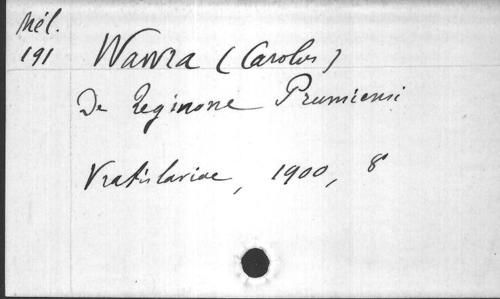 Mél.
191
Wawra (Carolus)
De Reginone Prumiensi
Vratislaviae, 1900, 8°